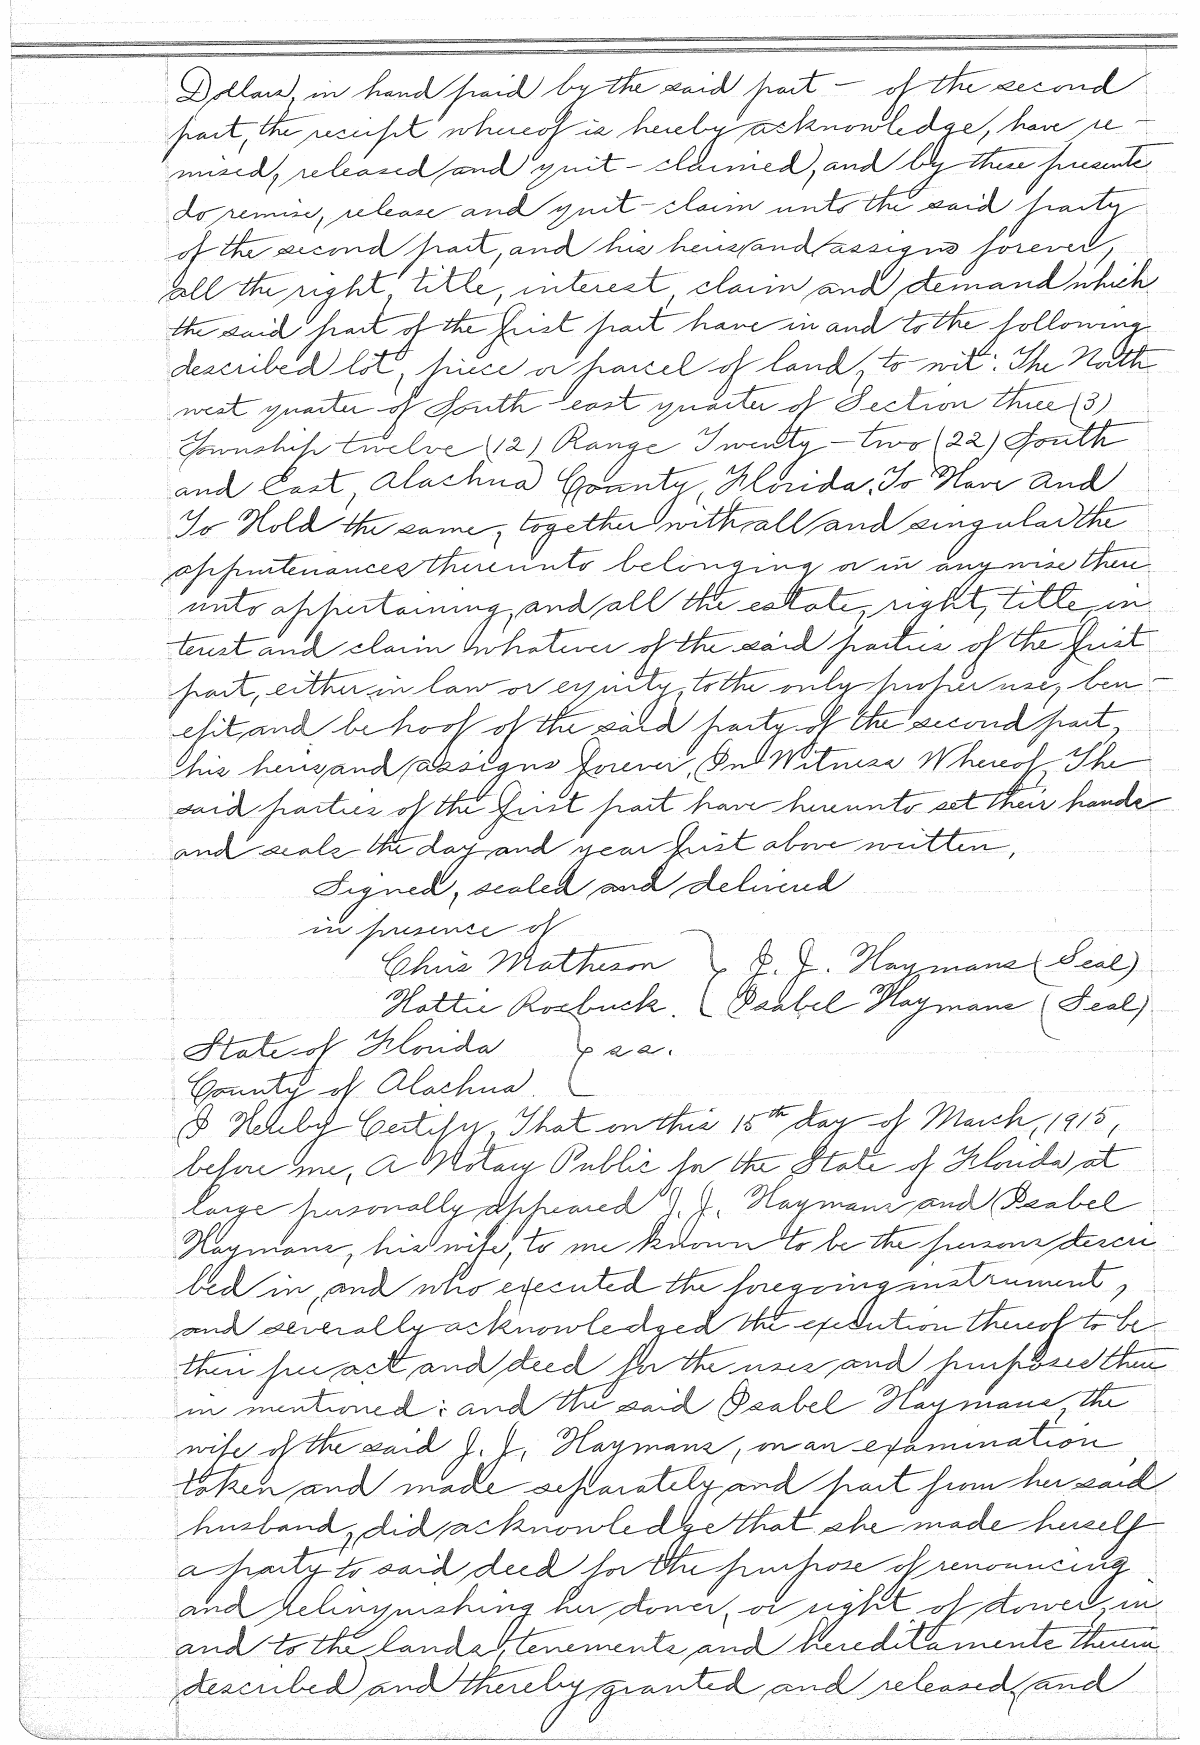 Dollars, in hand paid by the said part — of the second
part, the receipt whereof is hereby acknowledge, have re-
mised, released and quit-claimed, and by these presents
do remise, release and quit-claim unto the said party
of the second part, and his heirs and assigns forever,
all the right, title, interest, claim and demand which
the said part of the first part have in and to the following
described lot, piece or parcel of land, to wit: The North
west quarter of South east quarter of Section three (3)
Township twelve (12) Range Twenty-two (22) South
and East, Alachua County, Florida. To Have and
To Hold the same, together with all and singular the
appurtenances thereunto belonging or in anywise there
unto appertaining, and all the estate, right, title, in
terest and claim whatever of the said parties of the first
part, either in law or equity, to the only proper use, ben-
efit and behoof of the said party of the second part,
his heirs and assigns forever. In Witness Whereof, The
said parties of the first part have hereunto set their hands
and seals the day and year first above written.
Signed, sealed and delivered
in presence of
Chris Matheson } J. J. Haymans (Seal)
Hattie Roebuck. Isabel Haymans (Seal)
State of Florida } ss.
County of Alachua
I Hereby Certify, That on this 15th day of March, 1915,
before me, A Notary Public for the State of Florida at
large personally appeared J. J. Haymans and Isabel
Haymans, his wife, to me known to be the persons descri
bed in, and who executed the foregoing instrument,
and severally acknowledged the execution thereof to be
their free act and deed for the uses and purposes there
in mentioned; and the said Isabel Haymans, the
wife of the said J. J. Haymans, on an examination
taken and made separately and part from her said
husband, did acknowledge that she made herself
a party to said deed for the purpose of renouncing
and relinquishing her dower, or right of dower, in
and to the lands, tenements and hereditaments therein
described and thereby granted and released, and